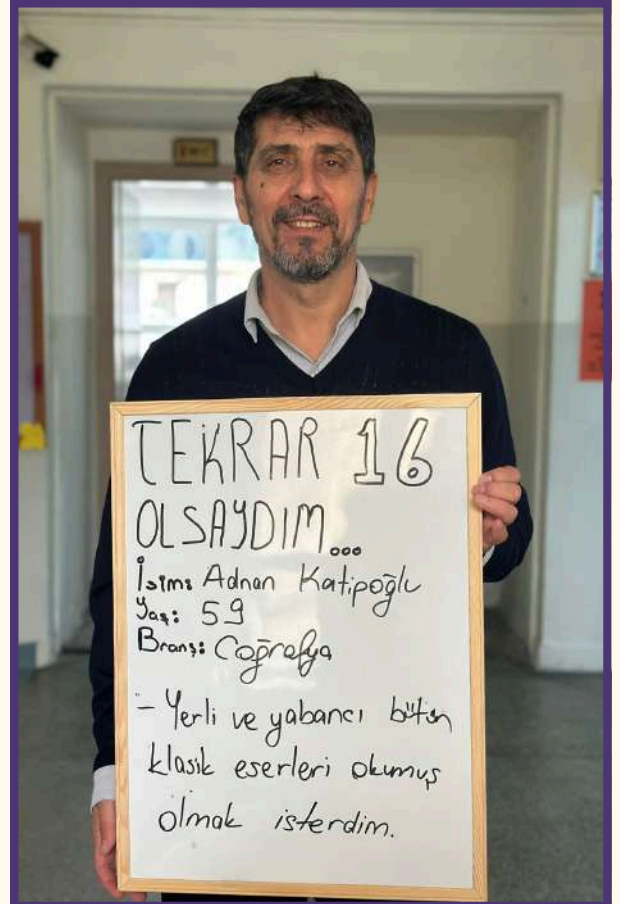 TEKRAR 16
OLSAYDIM...
İsim: Adnan Katipoğlu
Yaş: 59
Branş: Coğrafya
- Yerli ve yabancı bütün
klasik eserleri okumuş
olmak isterdim.